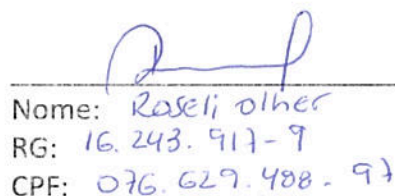 Nome: Roseli olher
RG: 16.243.917-9
CPF: 076.629.488-97